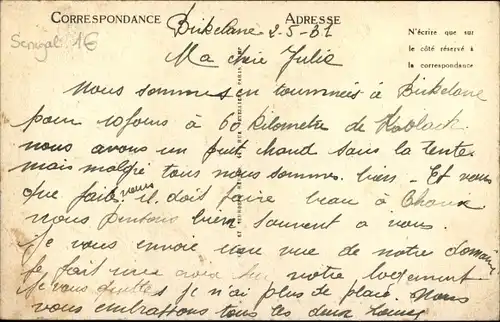 CORRESPONDANCE
ADRESSE
Senegal 1€
Birkelane 2-5-31
N'écrire que sur
le côté réservé à
la correspondance
Ma chère Julie
Nous sommes en tournnés à Birkelane
pour 10 jours à 60 kilometre de Koblack
nous avons un fruit chaud sous la tente
mais malgré tous nous sommes bien - Et vous
que faites vous il doit faire beau à
nous pensons bien souvent à vous.
Je vous envoie une vue de notre
Je fait une croix sur notre logement
Je vous quittes je n'ai plus de place. Nous
vous embrassons tous les deux